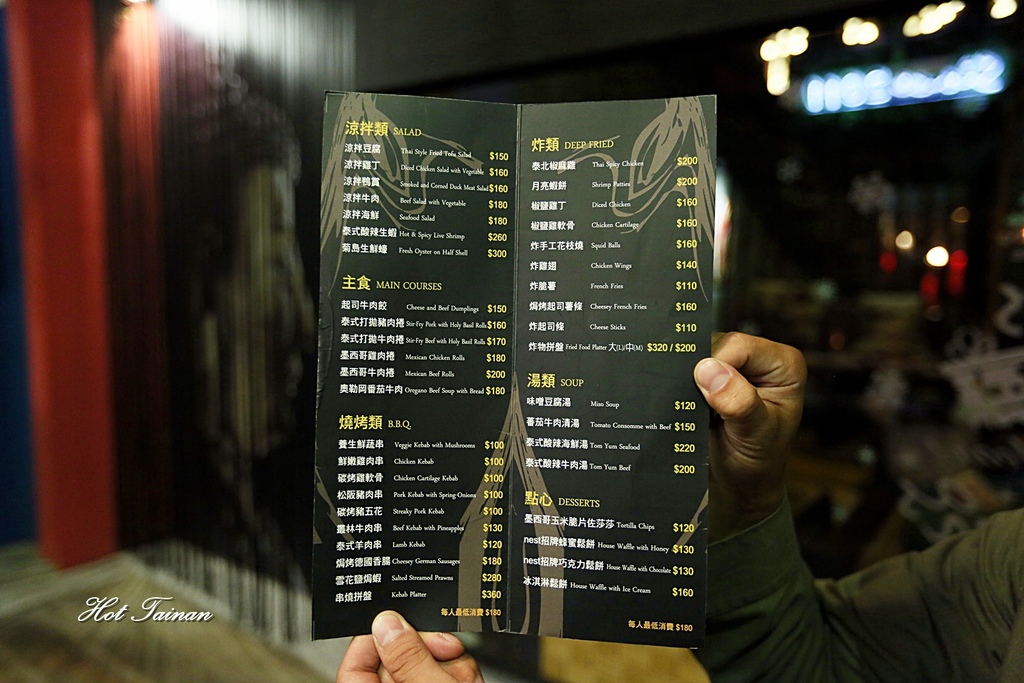 涼拌類 SALAD
涼拌豆腐 Thai Style Fried Tofu Salad $150
涼拌雞丁 Diced Chicken Salad with Vegetable $160
涼拌鴨賞 Smoked and Corned Duck Meat Salad $160
涼拌牛肉 Beef Salad with Vegetable $180
涼拌海鮮 Seafood Salad $180
泰式酸辣生蝦 Hot & Spicy Live Shrimp $260
菊島生鮮蠔 Fresh Oyster on Half Shell $300
主食 MAIN COURSES
起司牛肉餃 Cheese and Beef Dumplings $150
泰式打拋豬肉捲 Stir-Fry Pork with Holy Basil Rolls $160
泰式打拋牛肉捲 Stir-Fry Beef with Holy Basil Rolls $170
墨西哥雞肉捲 Mexican Chicken Rolls $180
墨西哥牛肉捲 Mexican Beef Rolls $200
奧勒岡番茄牛肉 Oregano Beef Soup with Bread $180
燒烤類 B.B.Q.
養生鮮蔬串 Veggie Kebab with Mushrooms $100
鮮嫩雞肉串 Chicken Kebab $100
碳烤雞軟骨 Chicken Cartilage Kebab $100
松阪豬肉串 Pork Kebab with Spring-Onions $100
碳烤豬五花 Streaky Pork Kebab $100
叢林牛肉串 Beef Kebab with Pineapples $130
泰式羊肉串 Lamb Kebab $120
焗烤德國香腸 Cheesey German Sausages $180
雪花鹽焗蝦 Salted Streamed Prawns $280
串燒拼盤 Kebab Platter $360
每人最低消費 $180
炸類 DEEP FRIED
泰北椒麻雞 Thai Spicy Chicken $200
月亮蝦餅 Shrimp Patties $200
椒鹽雞丁 Diced Chicken $160
椒鹽雞軟骨 Chicken Cartilage $160
炸手工花枝燒 Squid Balls $160
炸雞翅 Chicken Wings $140
炸脆薯 French Fries $110
焗烤起司薯條 Cheesey French Fries $160
炸起司條 Cheese Sticks $110
炸物拼盤 Fried Food Platter 大(L)/中(M) $320 / $200
湯類 SOUP
味噌豆腐湯 Miso Soup $120
蕃茄牛肉清湯 Tomato Consomme with Beef $150
泰式酸辣海鮮湯 Tom Yum Seafood $220
泰式酸辣牛肉湯 Tom Yum Beef $200
點心 DESSERTS
墨西哥玉米脆片佐莎莎 Tortilla Chips $120
nest招牌蜂蜜鬆餅 House Waffle with Honey $130
nest招牌巧克力鬆餅 House Waffle with Chocolate $130
冰淇淋鬆餅 House Waffle with Ice Cream $160
每人最低消費 $180
Hot Tainan